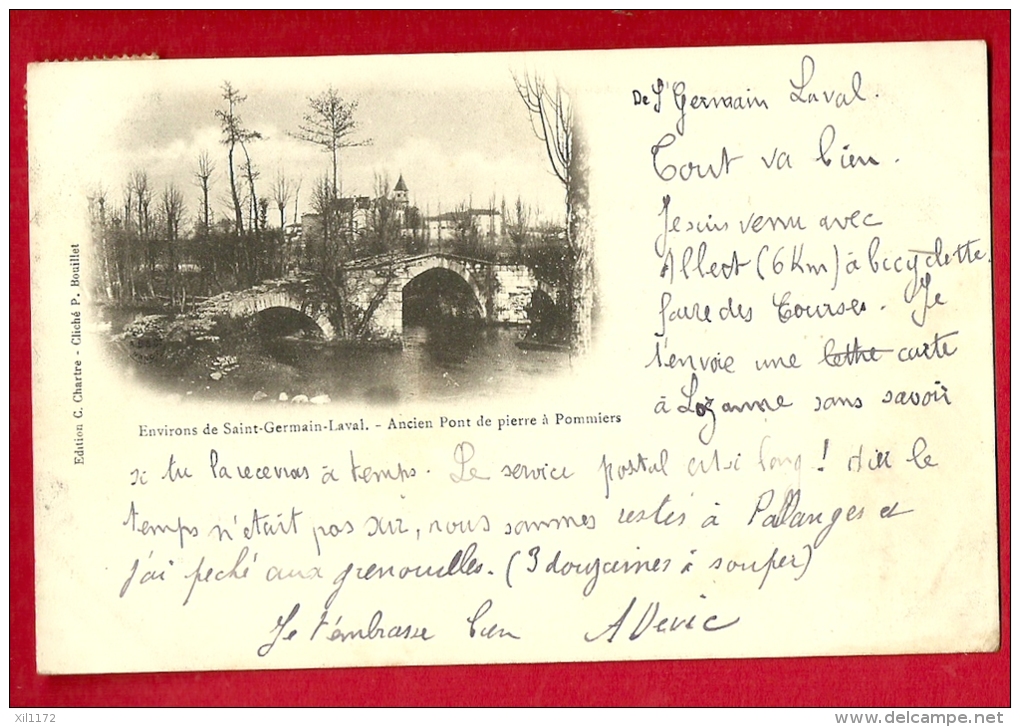 De St Germain Laval.
Tout va bien.
Je suis venu avec
Albert (6 Km) à bicyclette
faire des Courses. Je
t'envoie une lettre carte
à Lozanne sans savoir
si tu la recevras à temps. Le service postal est si long! Hier le
temps n'était pas sûr, nous sommes restés à Pallanges et
j'ai pêché aux grenouilles. (3 douzaines à souper)
Je t'embrasse bien A Devic
Environs de Saint-Germain-Laval. - Ancien Pont de pierre à Pommiers
Edition C. Chartre - Cliché P. Bouillet
xil1172
www.delcampe.net